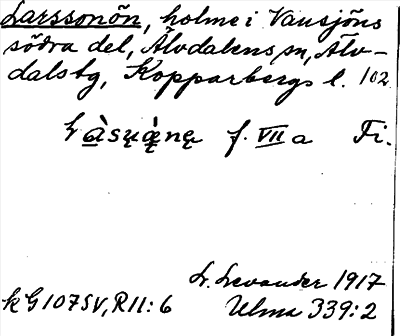 Larssonön, holme i Vansjöns
södra del, Älvdalens sn, Älv-
dalstg, Kopparbergs l. 102
f. VII a Fi.
L. Levander 1917
kG107SV, R11:6 Ulma 339:2